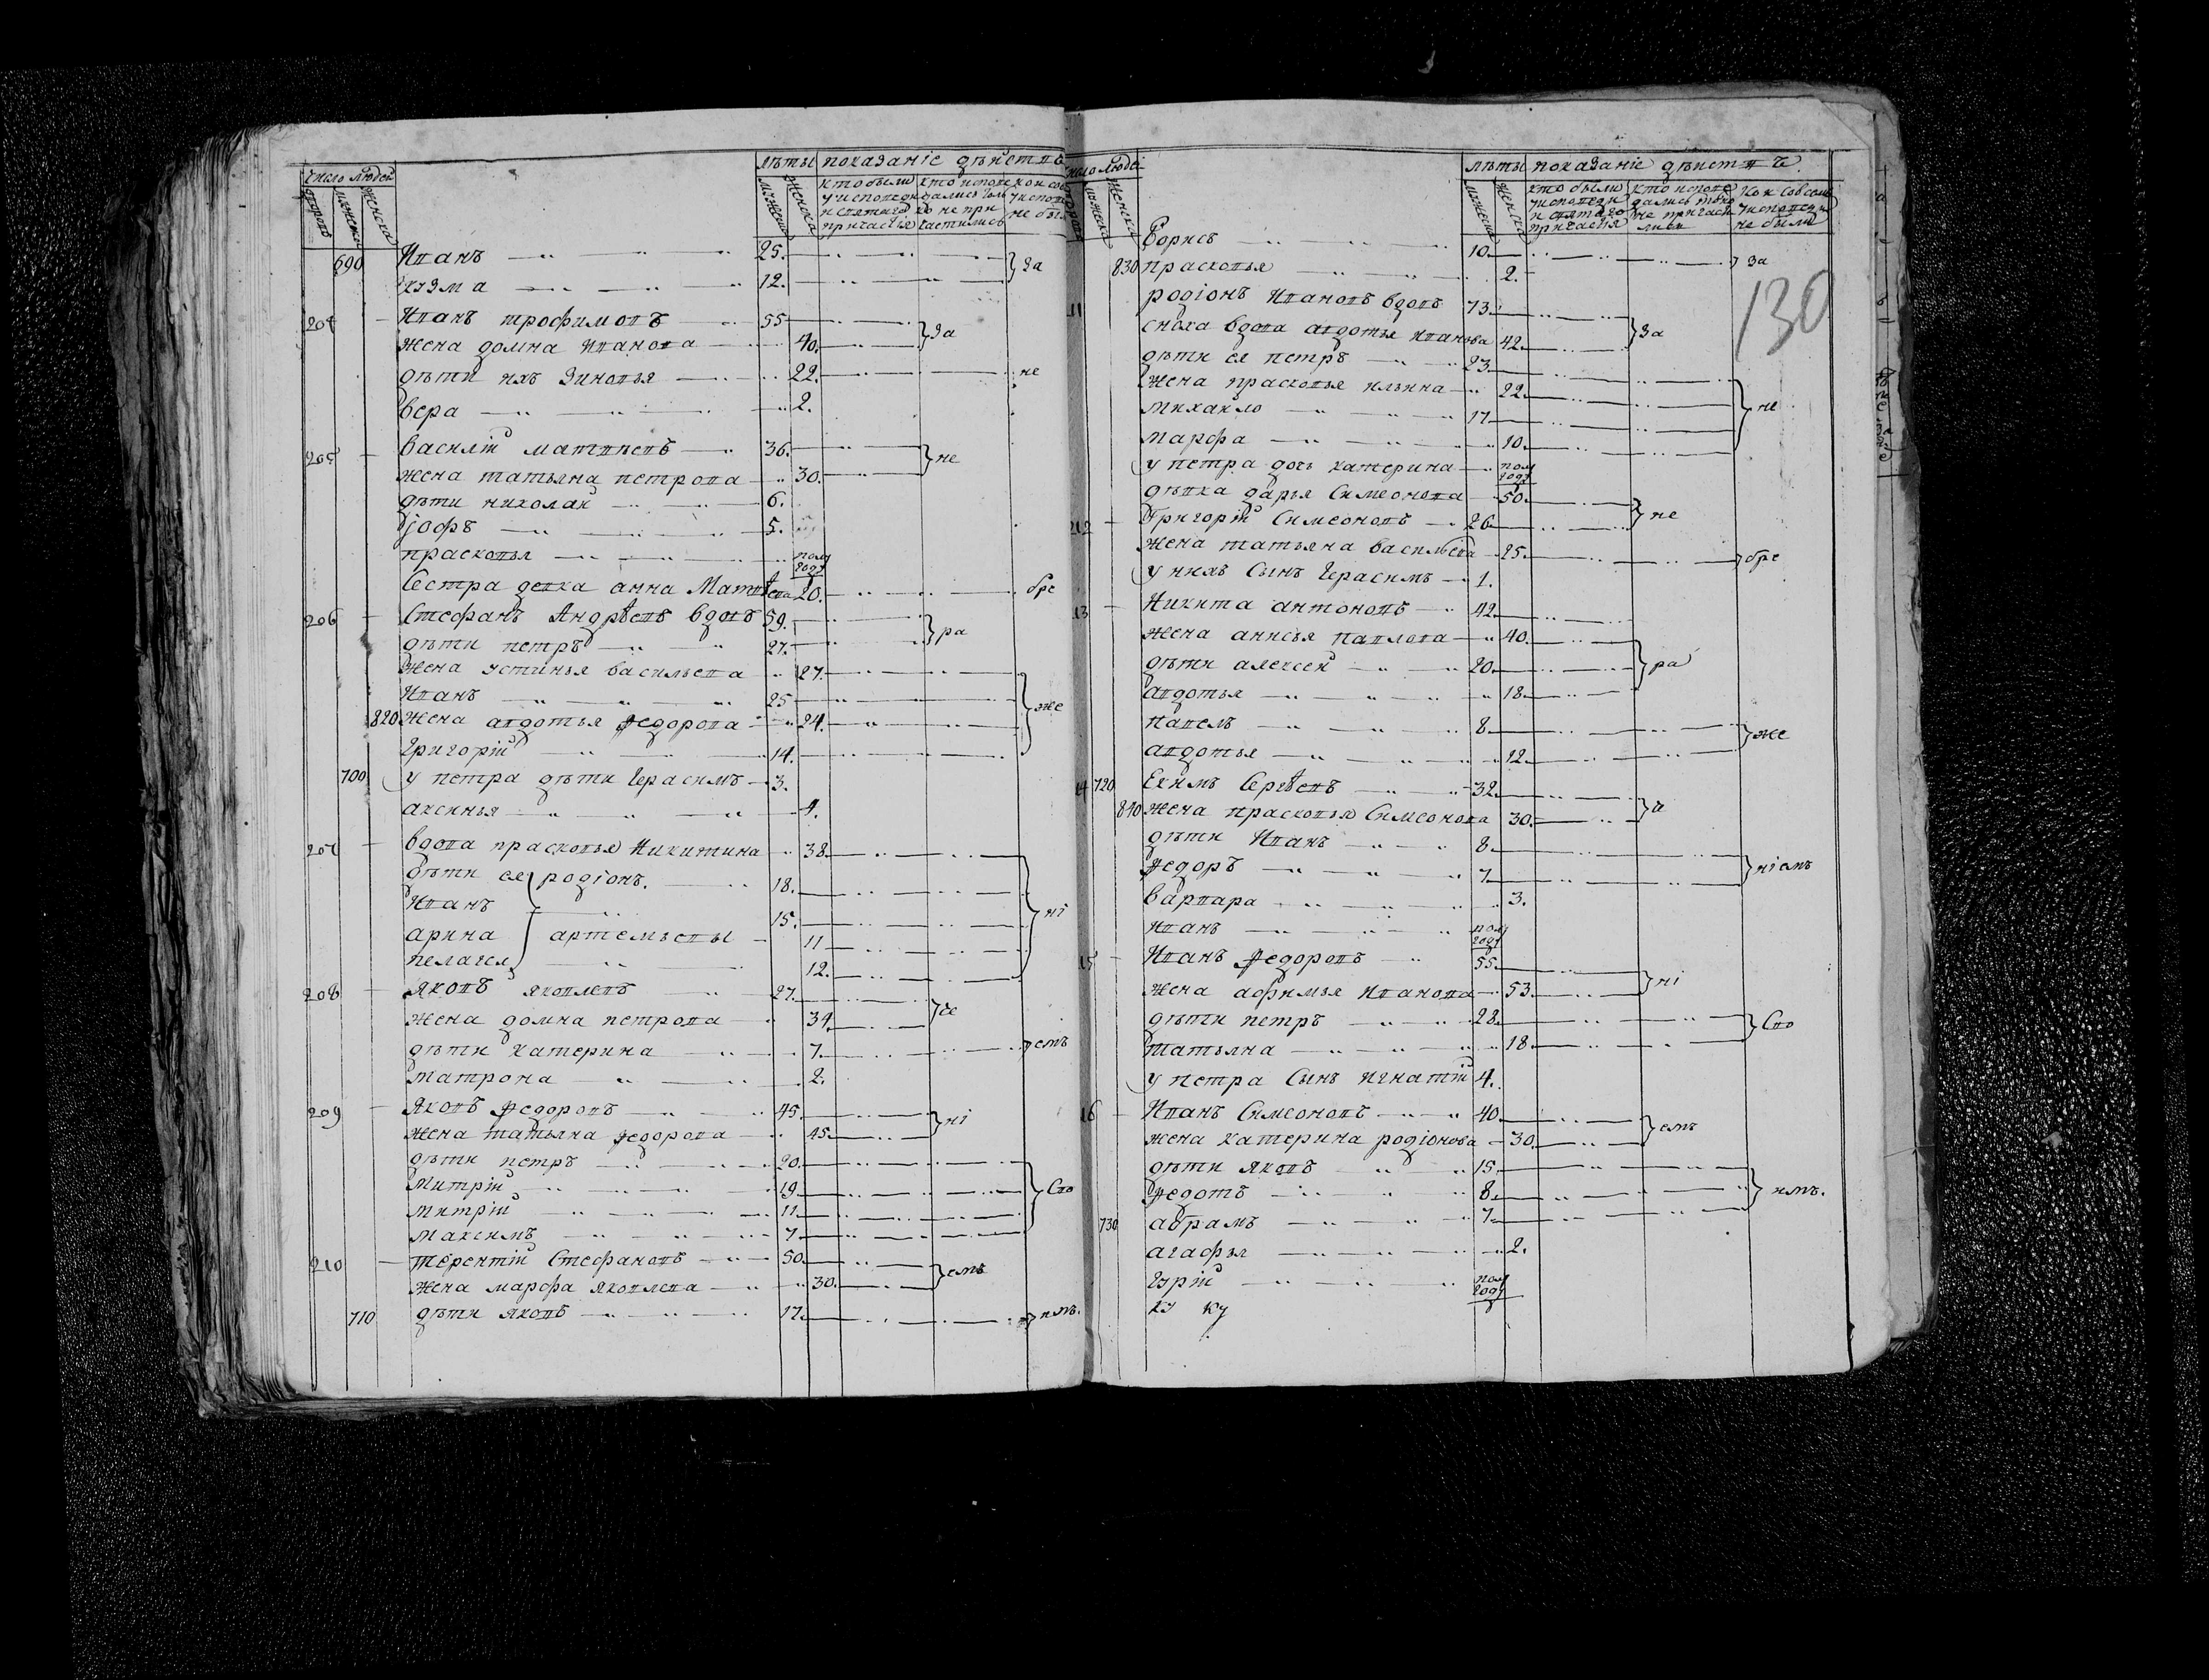 число людей лѣты показаніе дѣйствъ
дворовъ мужеска женска мужеска женска кто были у исповеди и святаго причастія кто исповедались толко не причастились
690 Иванъ 25. за
кузма 12.
204 Иванъ трофимовъ 55
жена домна иванова 40. за
дѣти ихъ Зиновья 22. не
вера 2.
205 василій матвѣевъ 36.
жена татьяна петрова 30. не
дѣти николай 6.
іофъ 5.
прасковья полугоду
Сестра девка анна Матвѣева 20. бре
206 Стефанъ Андрѣевъ вдовъ 59.
дѣти петръ 27. ра
жена устинья васильева 27.
Иванъ 25
820 жена авдотья федорова 24. же
Григорій 14.
700 у петра дѣти Герасимъ 3.
аксинья 4.
207 вдова прасковья Никитина 38.
дѣти ея родіонъ 18.
Иванъ 15.
арина артемьевы 11 ні
пелагея 12.
208 яковъ яковлевъ 27.
жена домна петрова 34. че
дѣти катерина 7. емъ
матрона 2.
209 яковъ федоровъ 45.
жена татьяна федорова 45. ні
дѣти петръ 20.
митрій 19. Сво
митрій 11.
максимъ 7
210 терентій Стефановъ 50.
жена марфа яковлева 30. емъ
710 дѣти яковъ 17. имъ.
число людей лѣты показаніе дѣйствъ
мужеска женска мужеска женска кто были у исповеди и святаго причастія кто исповедались токмо не причастились кои совсемъ у исповеди не были
Борисъ 10.
830 прасковья 2. за
130
11 родіонъ Ивановъ вдовъ 73.
сноха вдова авдотья иванова 42. за
дѣти ея петръ 23
жена прасковья ильина 22.
михайло 17. не
марфа 10.
у петра дочь катерина полгоду
дѣвка дарья Симеонова 50.
212 Григорій Симеоновъ 26 не
жена татьяна васильева 25. бре
у нихъ Сынъ Герасимъ 1.
13 Никита антоновъ 42.
жена анисья павлова 40.
дѣти алексей 20. ра
авдотья 18.
павелъ 8.
авдотья 12. же
14 720 Екимъ Сергѣевъ 32.
840 жена прасковья Симеонова 30. а
дѣти Иванъ 8.
федоръ 7. ніемъ
варвара 3.
иванъ полгоду
15 Иванъ федоровъ 55.
жена афимья иванова 53. ні
дѣти петръ 28. Сво
татьяна 18.
у петра Сынъ игнатій 4.
16 Иванъ Симеоновъ 40.
жена катерина родіонова 30. емъ
дѣти яковъ 15.
федотъ 8. имъ.
730 абрамъ 7.
агафья 2.
Гурій полгоду